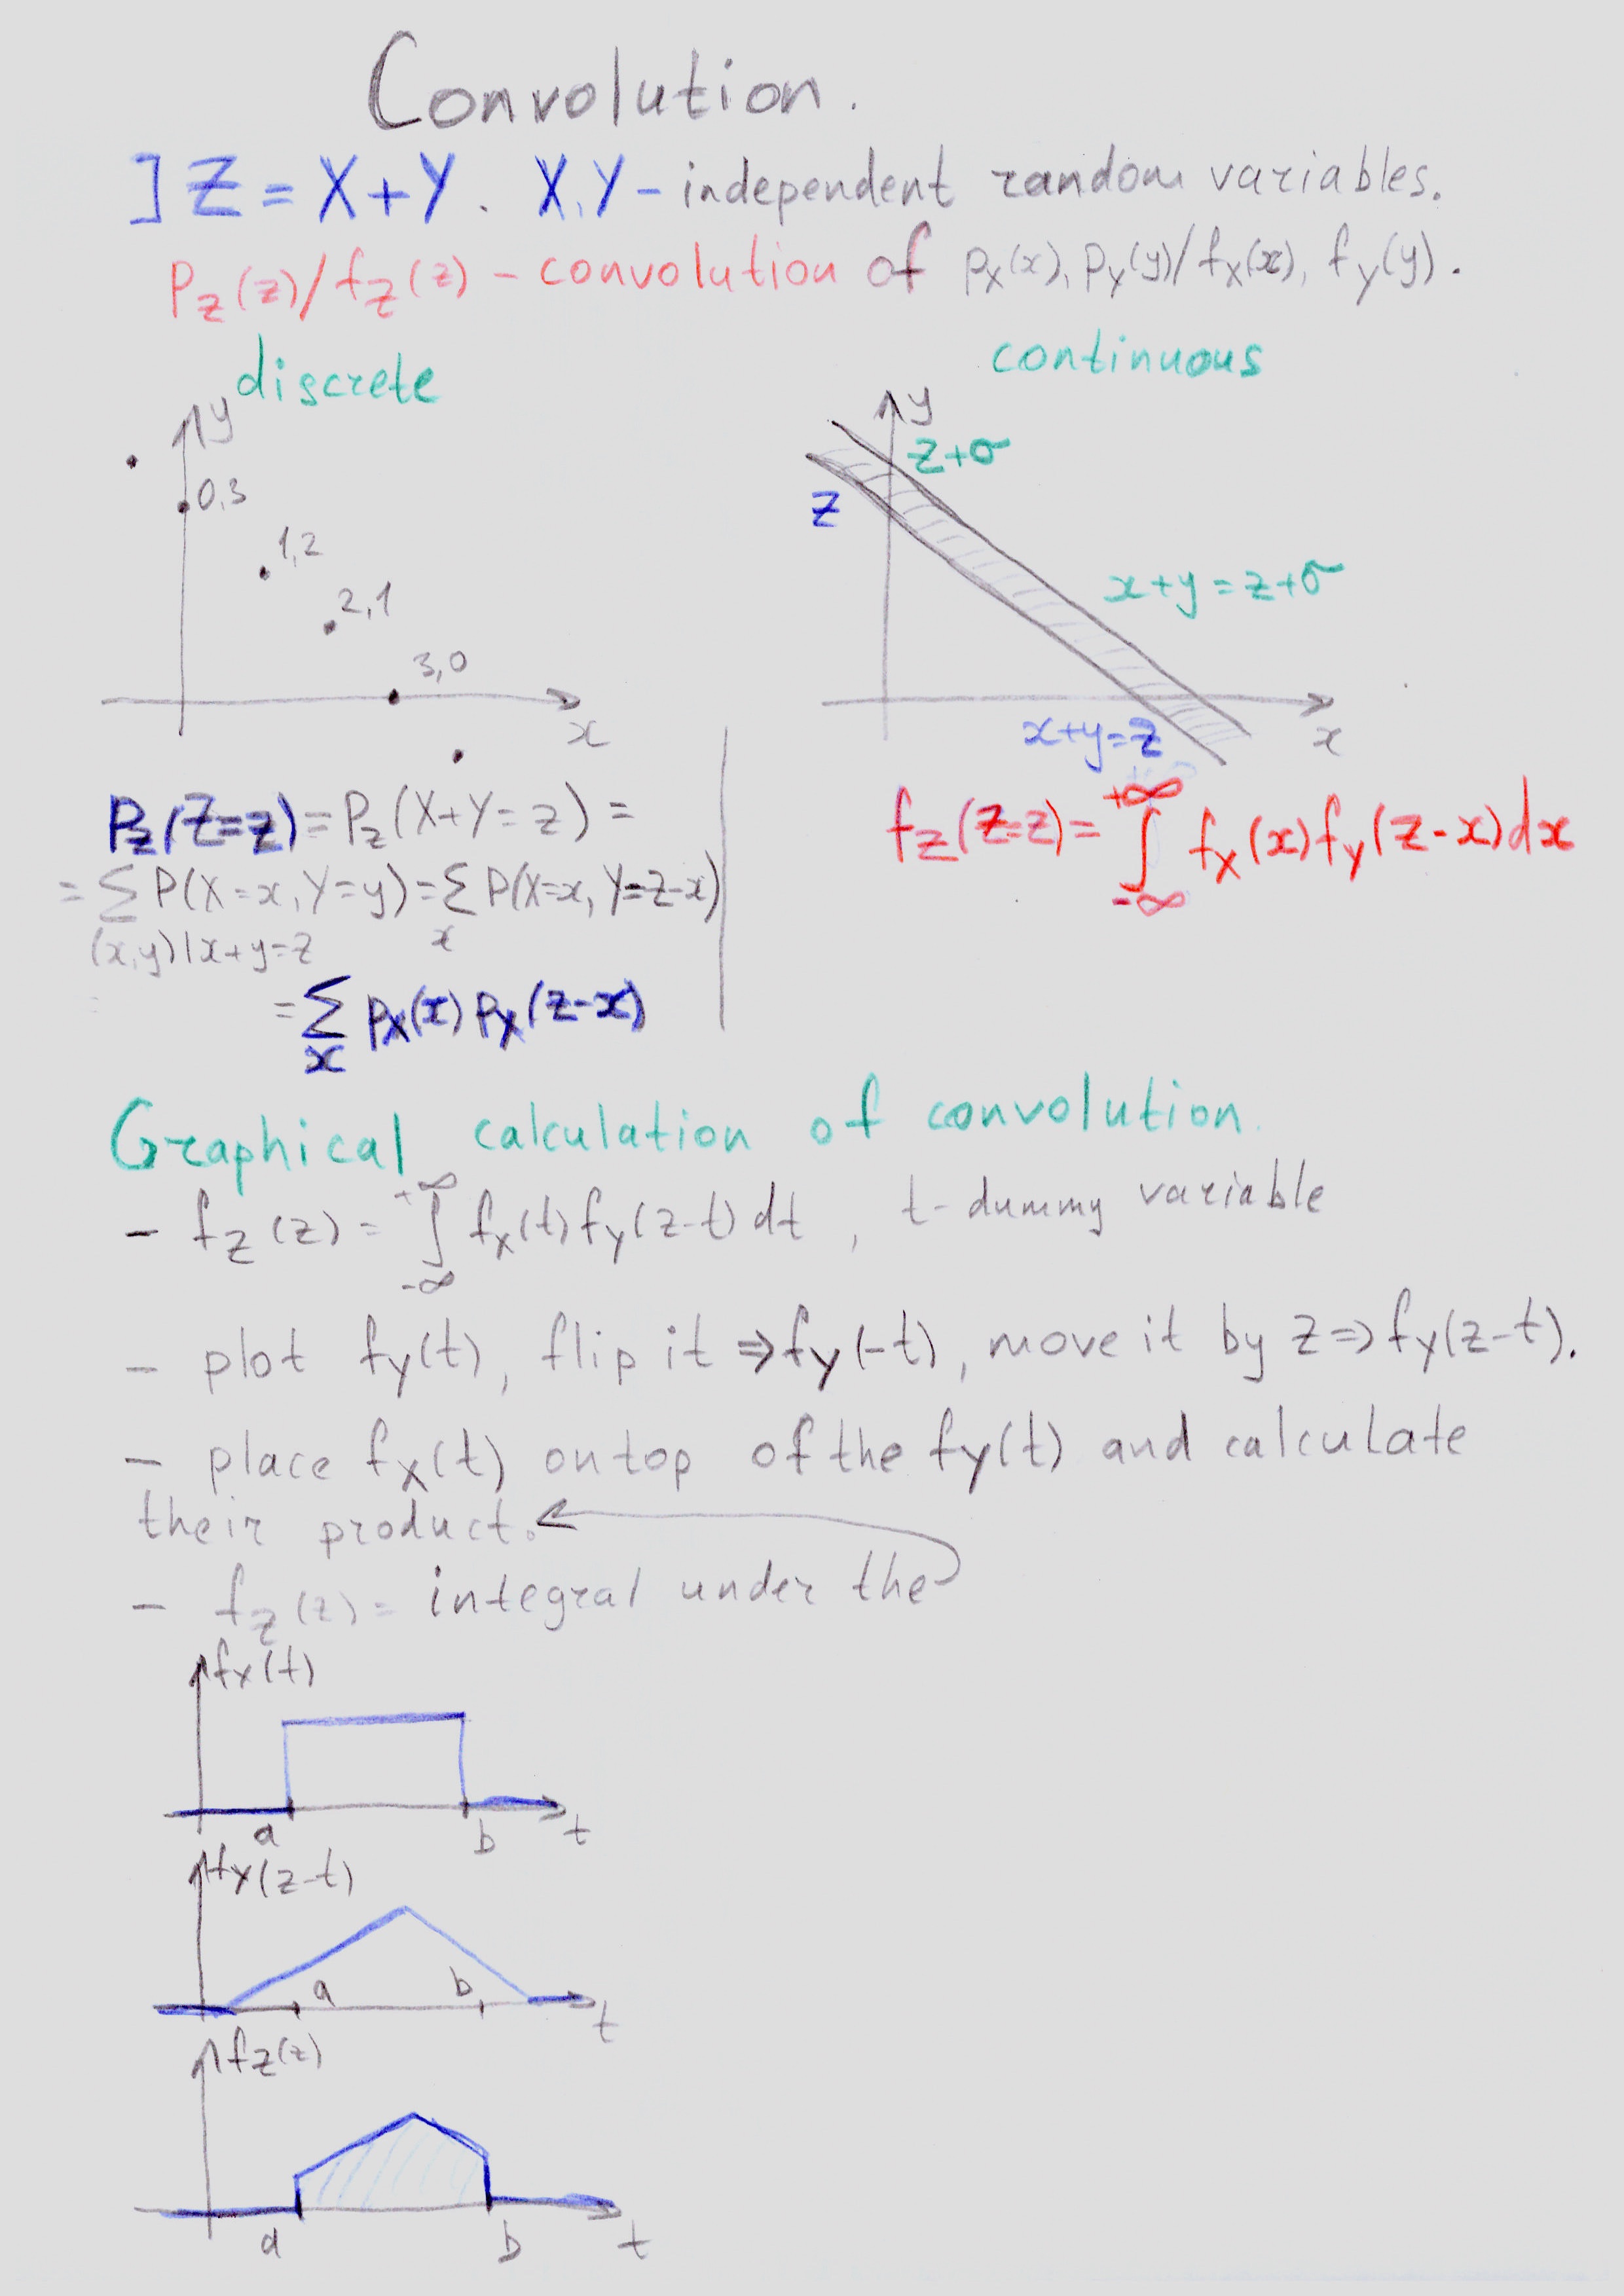 Convolution.
] Z = X+Y. X,Y - independent random variables.
P_Z(z)/f_Z(z) - convolution of p_X(x), p_Y(y)/f_X(x), f_Y(y).
discrete
y
0,3
1,2
2,1
3,0
x
P_Z(Z=z) = P_Z(X+Y=z) =
= Σ P(X=x, Y=y) = Σ P(X=x, Y=z-x)
(x,y)|x+y=z x
= Σ p_X(x) p_Y(z-x)
x
continuous
y
z+σ
z
x+y=z+σ
x+y=z
x
f_Z(Z=z) = ∫ f_X(x) f_Y(z-x)dx
+∞
-∞
Graphical calculation of convolution.
- f_Z(z) = ∫ f_X(t) f_Y(z-t) dt, t-dummy variable
+∞
-∞
- plot f_Y(t), flip it ⇒ f_Y(-t), move it by z ⇒ f_Y(z-t).
- place f_X(t) on top of the f_Y(t) and calculate
their product.
- f_Z(z) = integral under the
f_X(t)
a b t
f_Y(z-t)
a b t
f_Z(z)
a b t